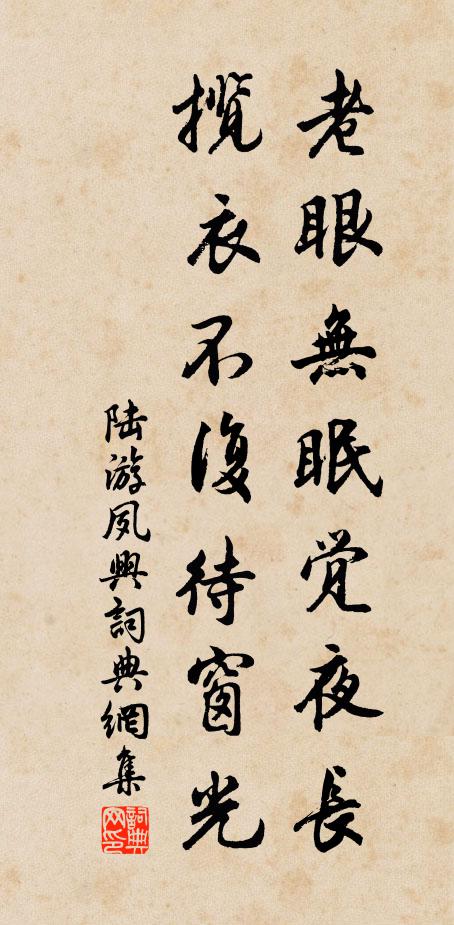 老眼無眠觉夜長
攬衣不復待窗光
陸游夙興詞典網集
詞典网印